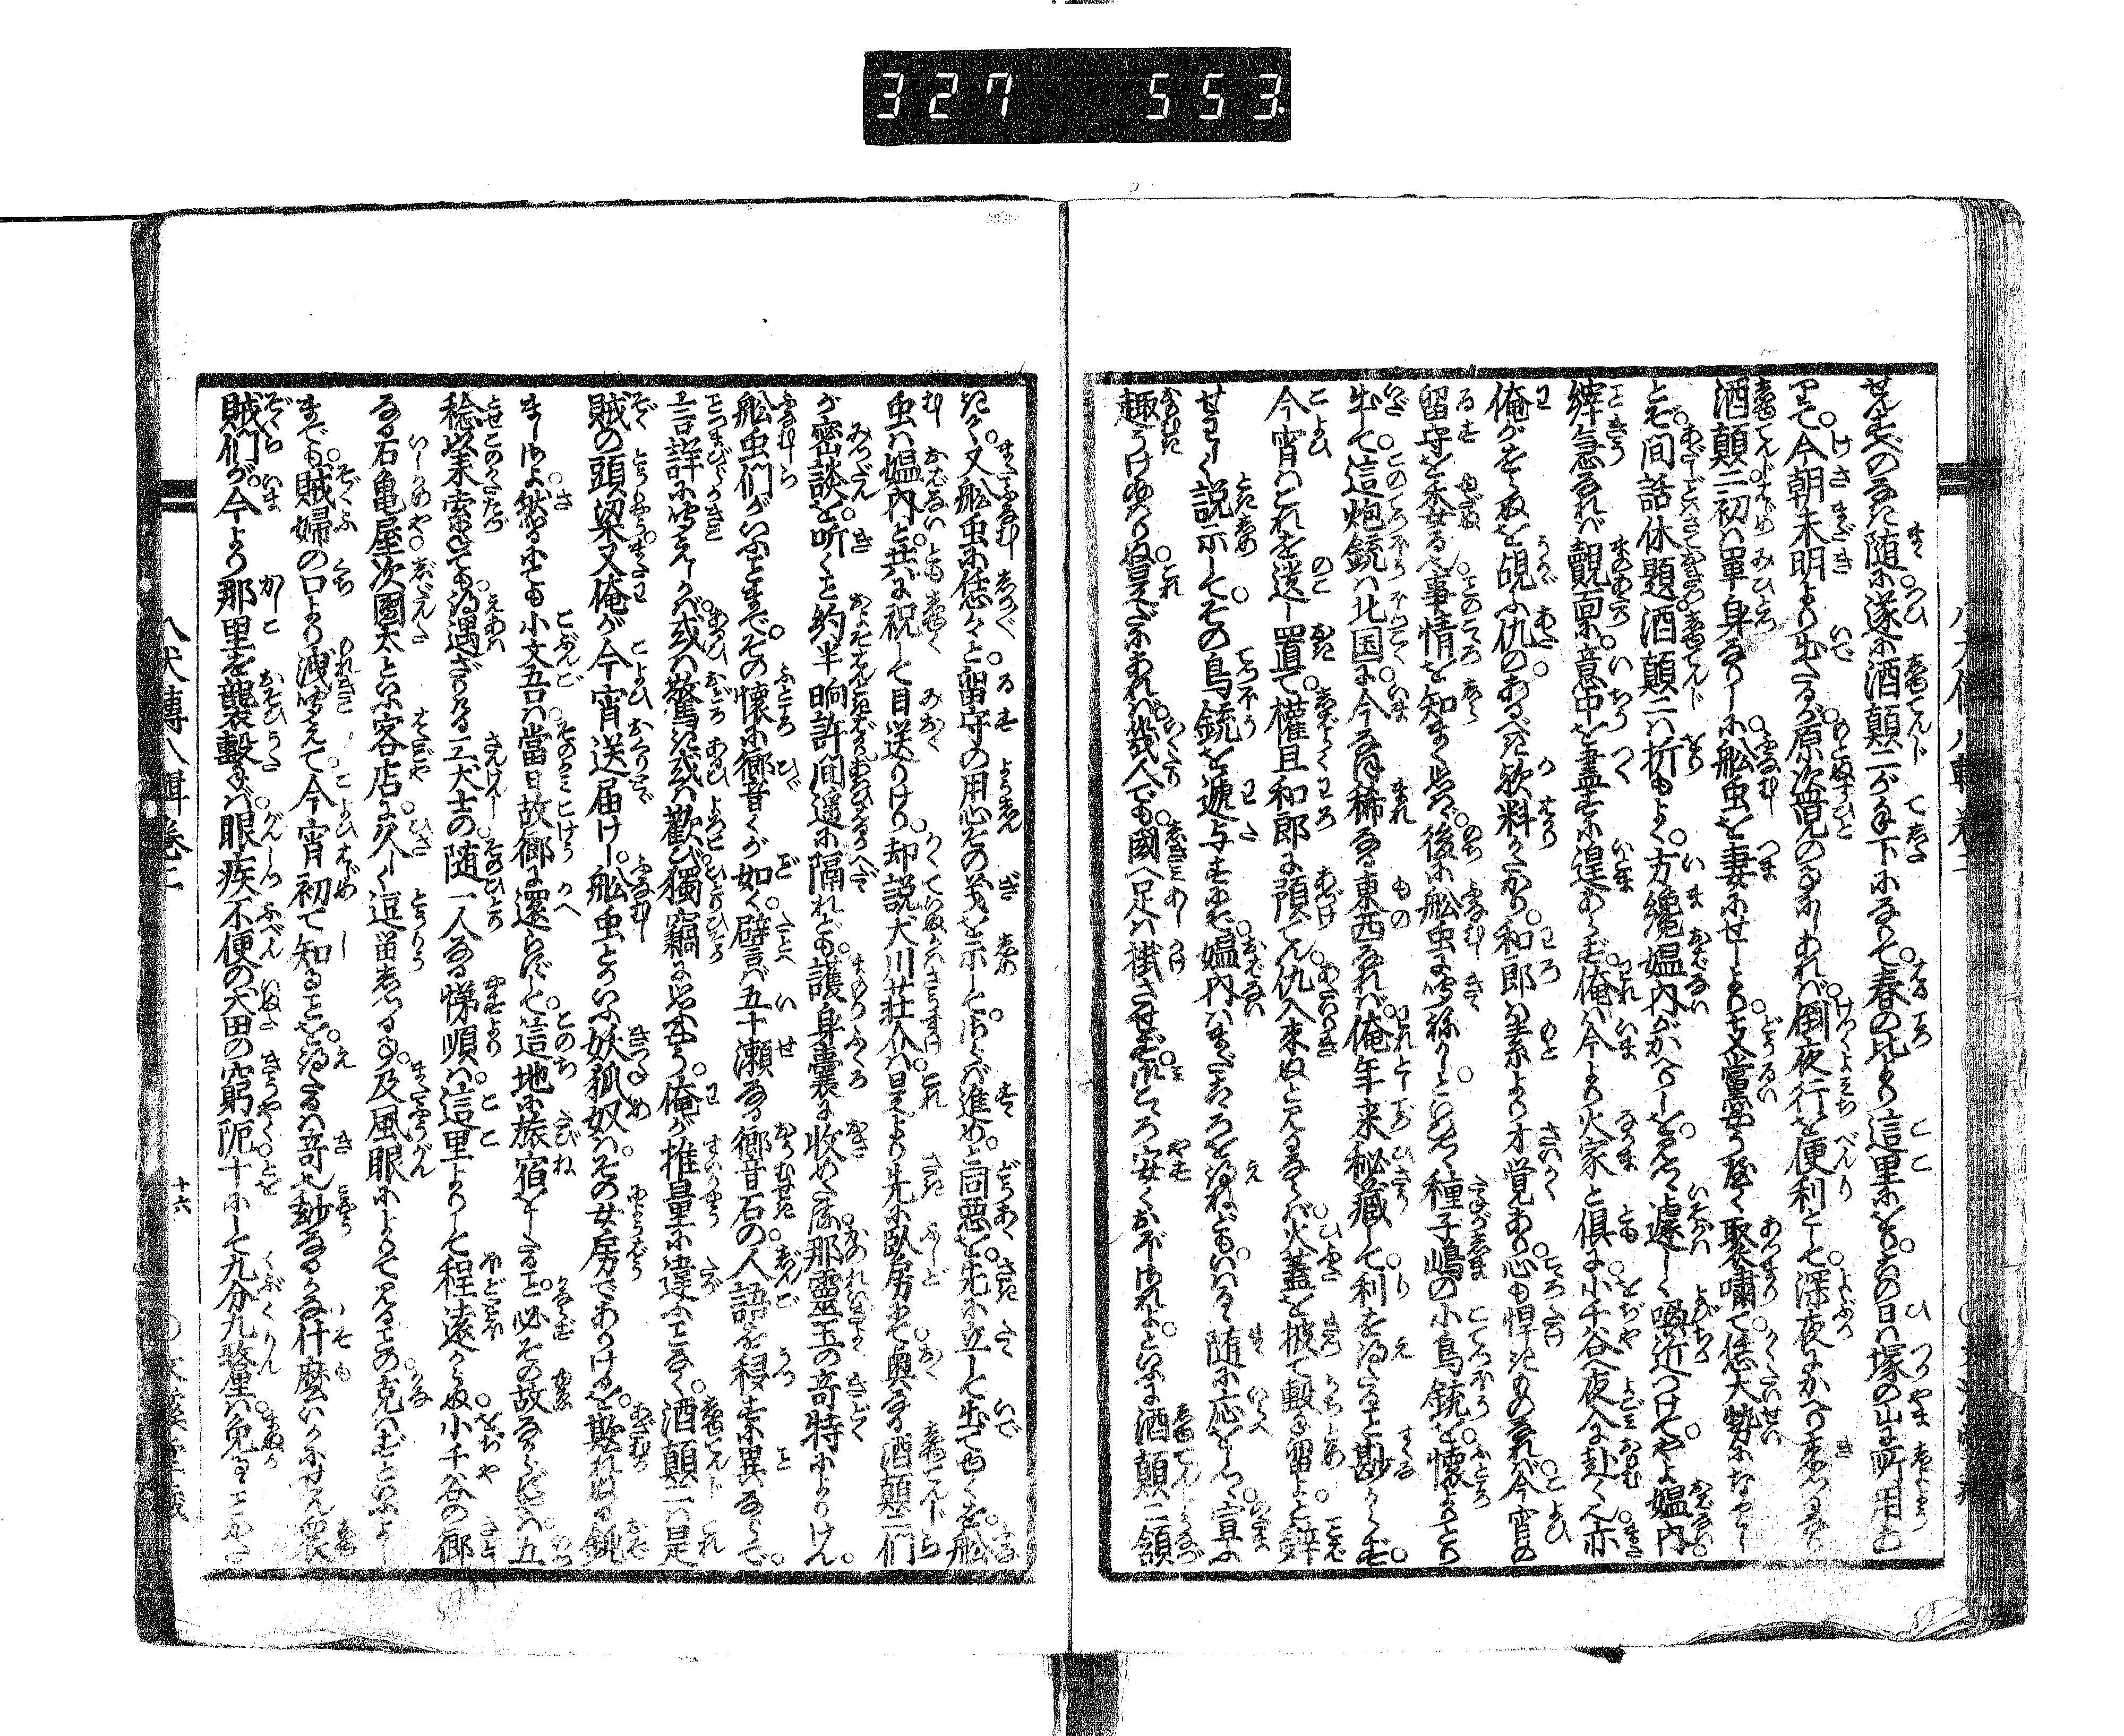 327 553
せんすべのなきまゝに遂に酒顛二が手下になりて春の比より這里にをり。その日は塚の山に所用あ
りて。今朝未明より出たるが。原次賢のなりしあれば倒夜行を便利として。深夜にかへり来つるなり
酒顛二初は単身なりしに船虫を妻にせしより支黨やうやく聚嘯て。恁大勢になりし
とぞ。間話休題酒顛二は折もよく。今纔媼内がかへりしを見つゝ遽しく喚近つけてやよ媼内
縡急なれば覿面に。意中を盡すに遑あらず。俺は今より火家と倶に。小千谷へ夜今に赴くべ亦
俺がをらぬを覘ふ仇のあるべき欤料りかたかり。和郎は素より才覚あり。心も悍きものなれば。今宵の
留守を委るべし。事情を知まくせば。後に船虫に聞ねかしといひつゝ種子嶋の小鳥銃を。懐よりとり
出して。這炮銃は北国に今なほ稀なる東西なれば。俺年来秘藏して。利を得たること尠からず。
今宵はこれを遺し置て。權且和郎に預るべし仇入来ぬと見るならば火蓋を披て撃も留よと。辞
せわしく説示しつゝ。その鳥銃を遞与すにぞ。媼内はまだこゝろを得ねどもいはるゝ随に応をしつゝ。宣ふ
趣うけ給はりぬ。是だにあれば幾人でも。國へ足は掛させず。こゝろ安くおぼしめされよ。といふに酒顛二頷
きつ。又船虫に恁々と。留守の用心その義を示して。さらば進めと同悪を。先に立して出てゆくを。船
虫は媼内と。共に祝して目送りけり。却説犬川荘介は是より先に臥房出て奥なる酒顛二們
が密談を。听くこと約半晌許間遥に隔れども。護身嚢に收めたる。那霊玉の奇特によりけん。
船虫們がいふことまで。その懐に響音くが如く。譬ば五十瀬なる響音石の人語を移すに異ならで。
言詳に聞えしかば。或は驚き或は歓び獨竊に思ふやう。俺が推量に違ふことなく。酒顛二は是
賊の頭梁。又俺が今宵送届けし。船虫とかいふ妖狐奴は。その女房でありけるを。欺れぬる鈍
ましさよ。然るにても小文吾は當日故郷に還らずして。這地に旅宿をしたること。必その故ならん。只五
稔以来索ても得遇ざりける二犬士の随一人なる悌順は。這里よりして程遠からぬ小千谷の郷
なる石亀屋次團太といふ客店に久しく逗留しつる事。及風眼によりて見ることの克はずといふよし
までも。賊婦の口より洩聞えて。今宵初て知ることを。得たるは奇也妙なるかな。什麼いかにせん。衆
賊們が。今より那里を襲撃ば。眼疾不便の犬田の窮阨。十にして九分九釐は免るゝことかたし
八犬傳八輯巻二
十六